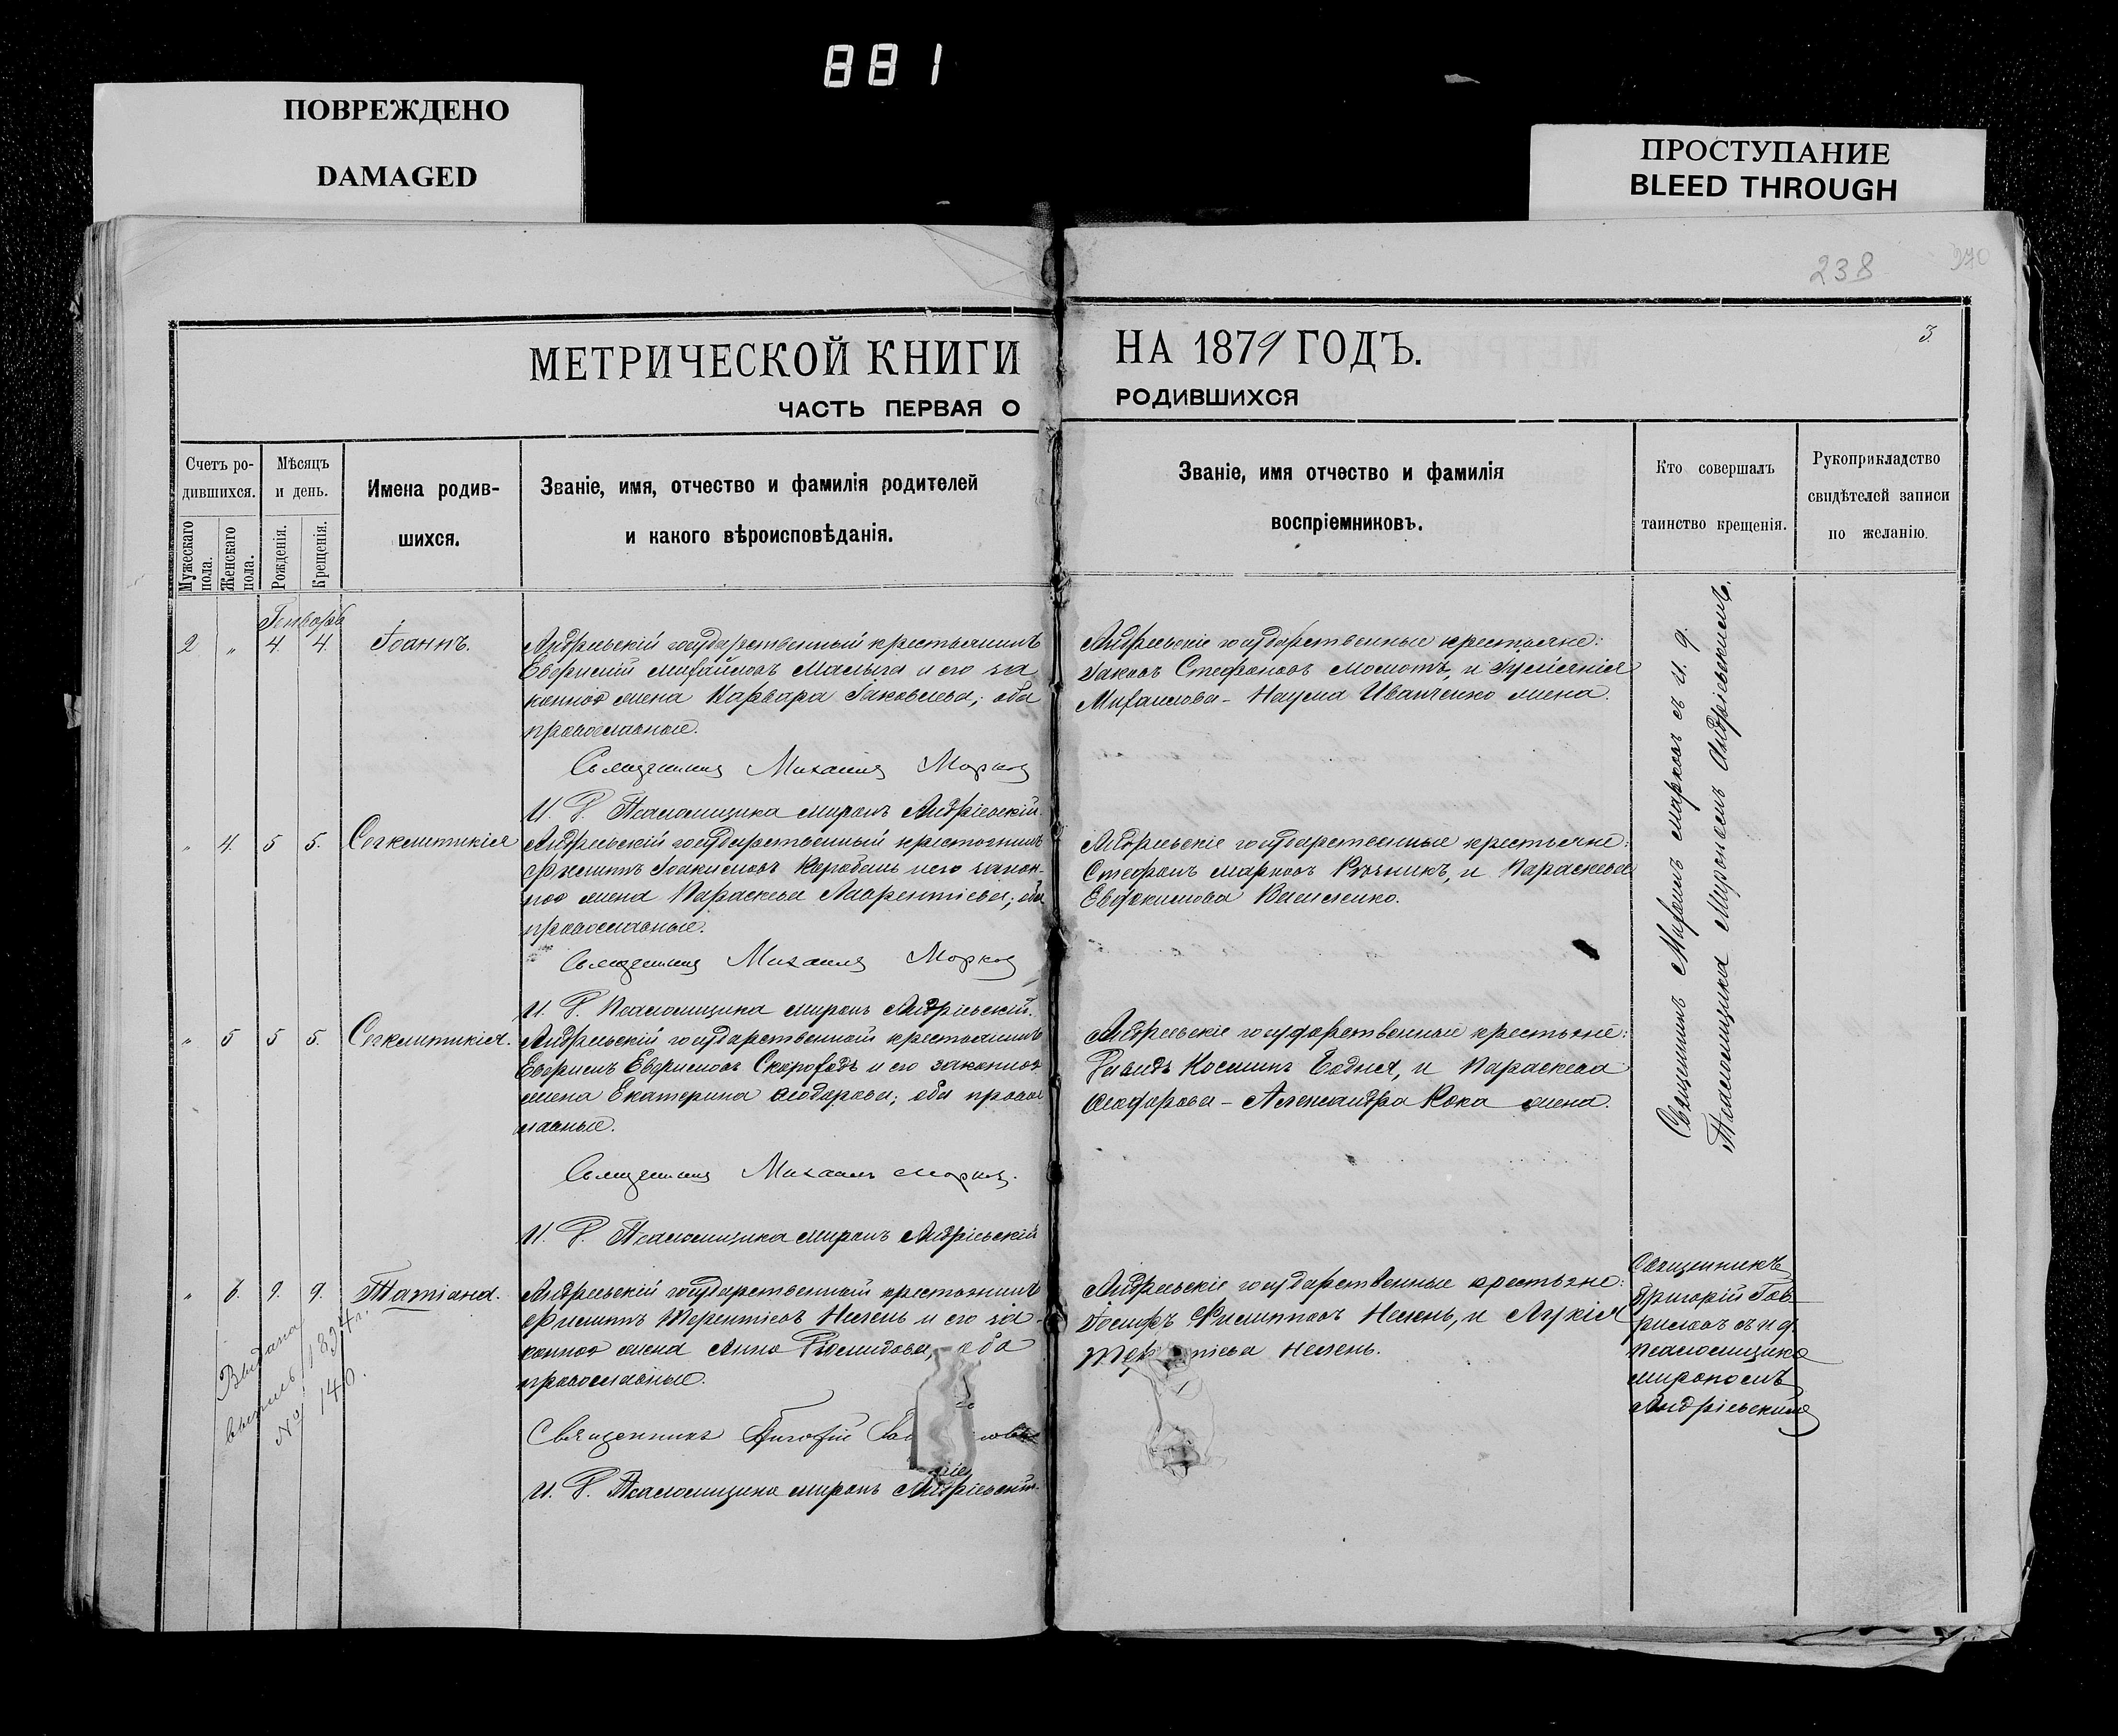 881
ПОВРЕЖДЕНО
DAMAGED
ПРОСТУПАНИЕ
BLEED THROUGH
238
270
3.
МЕТРИЧЕСКОЙ КНИГИ НА 1879 ГОДЪ.
ЧАСТЬ ПЕРВАЯ О РОДИВШИХСЯ
Счетъ ро-
дившихся.
Мужескаго пола.
Женскаго пола.
Мѣсяцъ
и день.
Рожденія.
Крещенія.
Имена родив-
шихся.
Званіе, имя, отчество и фамилія родителей
и какого вѣроисповѣданія.
Званіе, имя отчество и фамилія
воспріемниковъ.
Кто совершалъ
таинство крещенія.
Рукоприкладство
свидѣтелей записи
по желанію.
Генварь
2 " 4 4. Іоаннъ.
Андреевскій государственный крестьянинъ
Евфимій Михайловъ Малыга и его за
конная жена Варвара Іаковлева; оба
православные.
Священникъ Михаилъ Марковъ
И. Д. Псаломщика Миронъ Андріевскій.
Андреевскіе государственные крестьяне:
Іаковъ Стефановъ Молотъ, и
Михаилова - Наума Иванченко жена.
" 4. 5 5. Сегклитикія
Андреевскій государственный крестьянинъ
Филиппъ Іоакимовъ и его закон-
ная жена Параскева Лаврентіева; оба
православные.
Священникъ Михаилъ Марковъ
И. Д. Псаломщика Миронъ Андріевскій.
Андреевскіе государственные крестьяне:
Стефанъ Марковъ и Параскева
Евфимова Василенко.
" 5 5 5. Сегклитикія.
Андреевскій государственный крестьянинъ
Евфимъ Евфимовъ Скороходъ и его законная
жена Екатерина Ѳеодорова; оба правос
лавные.
Священникъ Михаилъ Марковъ.
И. Д. Псаломщика Миронъ Андріевскій
Андреевскіе государственные крестьяне:
Давидъ Косминъ и Параскева
Ѳеодорова - Александра Кока жена.
Священникъ Михаилъ Марковъ съ и. д.
Псаломщика Мирономъ Андріевскимъ.
" 6. 9. 9. Татіана.
Выдана
1894 г.
№ 140.
Андреевскій государственный крестьянинъ
Филиппъ Терентіевъ Нелень и его за-
конная жена Анна Діомидова, оба
православные.
Священникъ Григорій
И. Д. Псаломщика Миронъ Андріевскій.
Андреевскіе государственные крестьяне:
Іосифъ Филипповъ Нелень, и Лукія
Нелень.
Священникъ
Григорій Гав-
риловъ съ и. д.
псаломщика
Мирономъ
Андріевскимъ